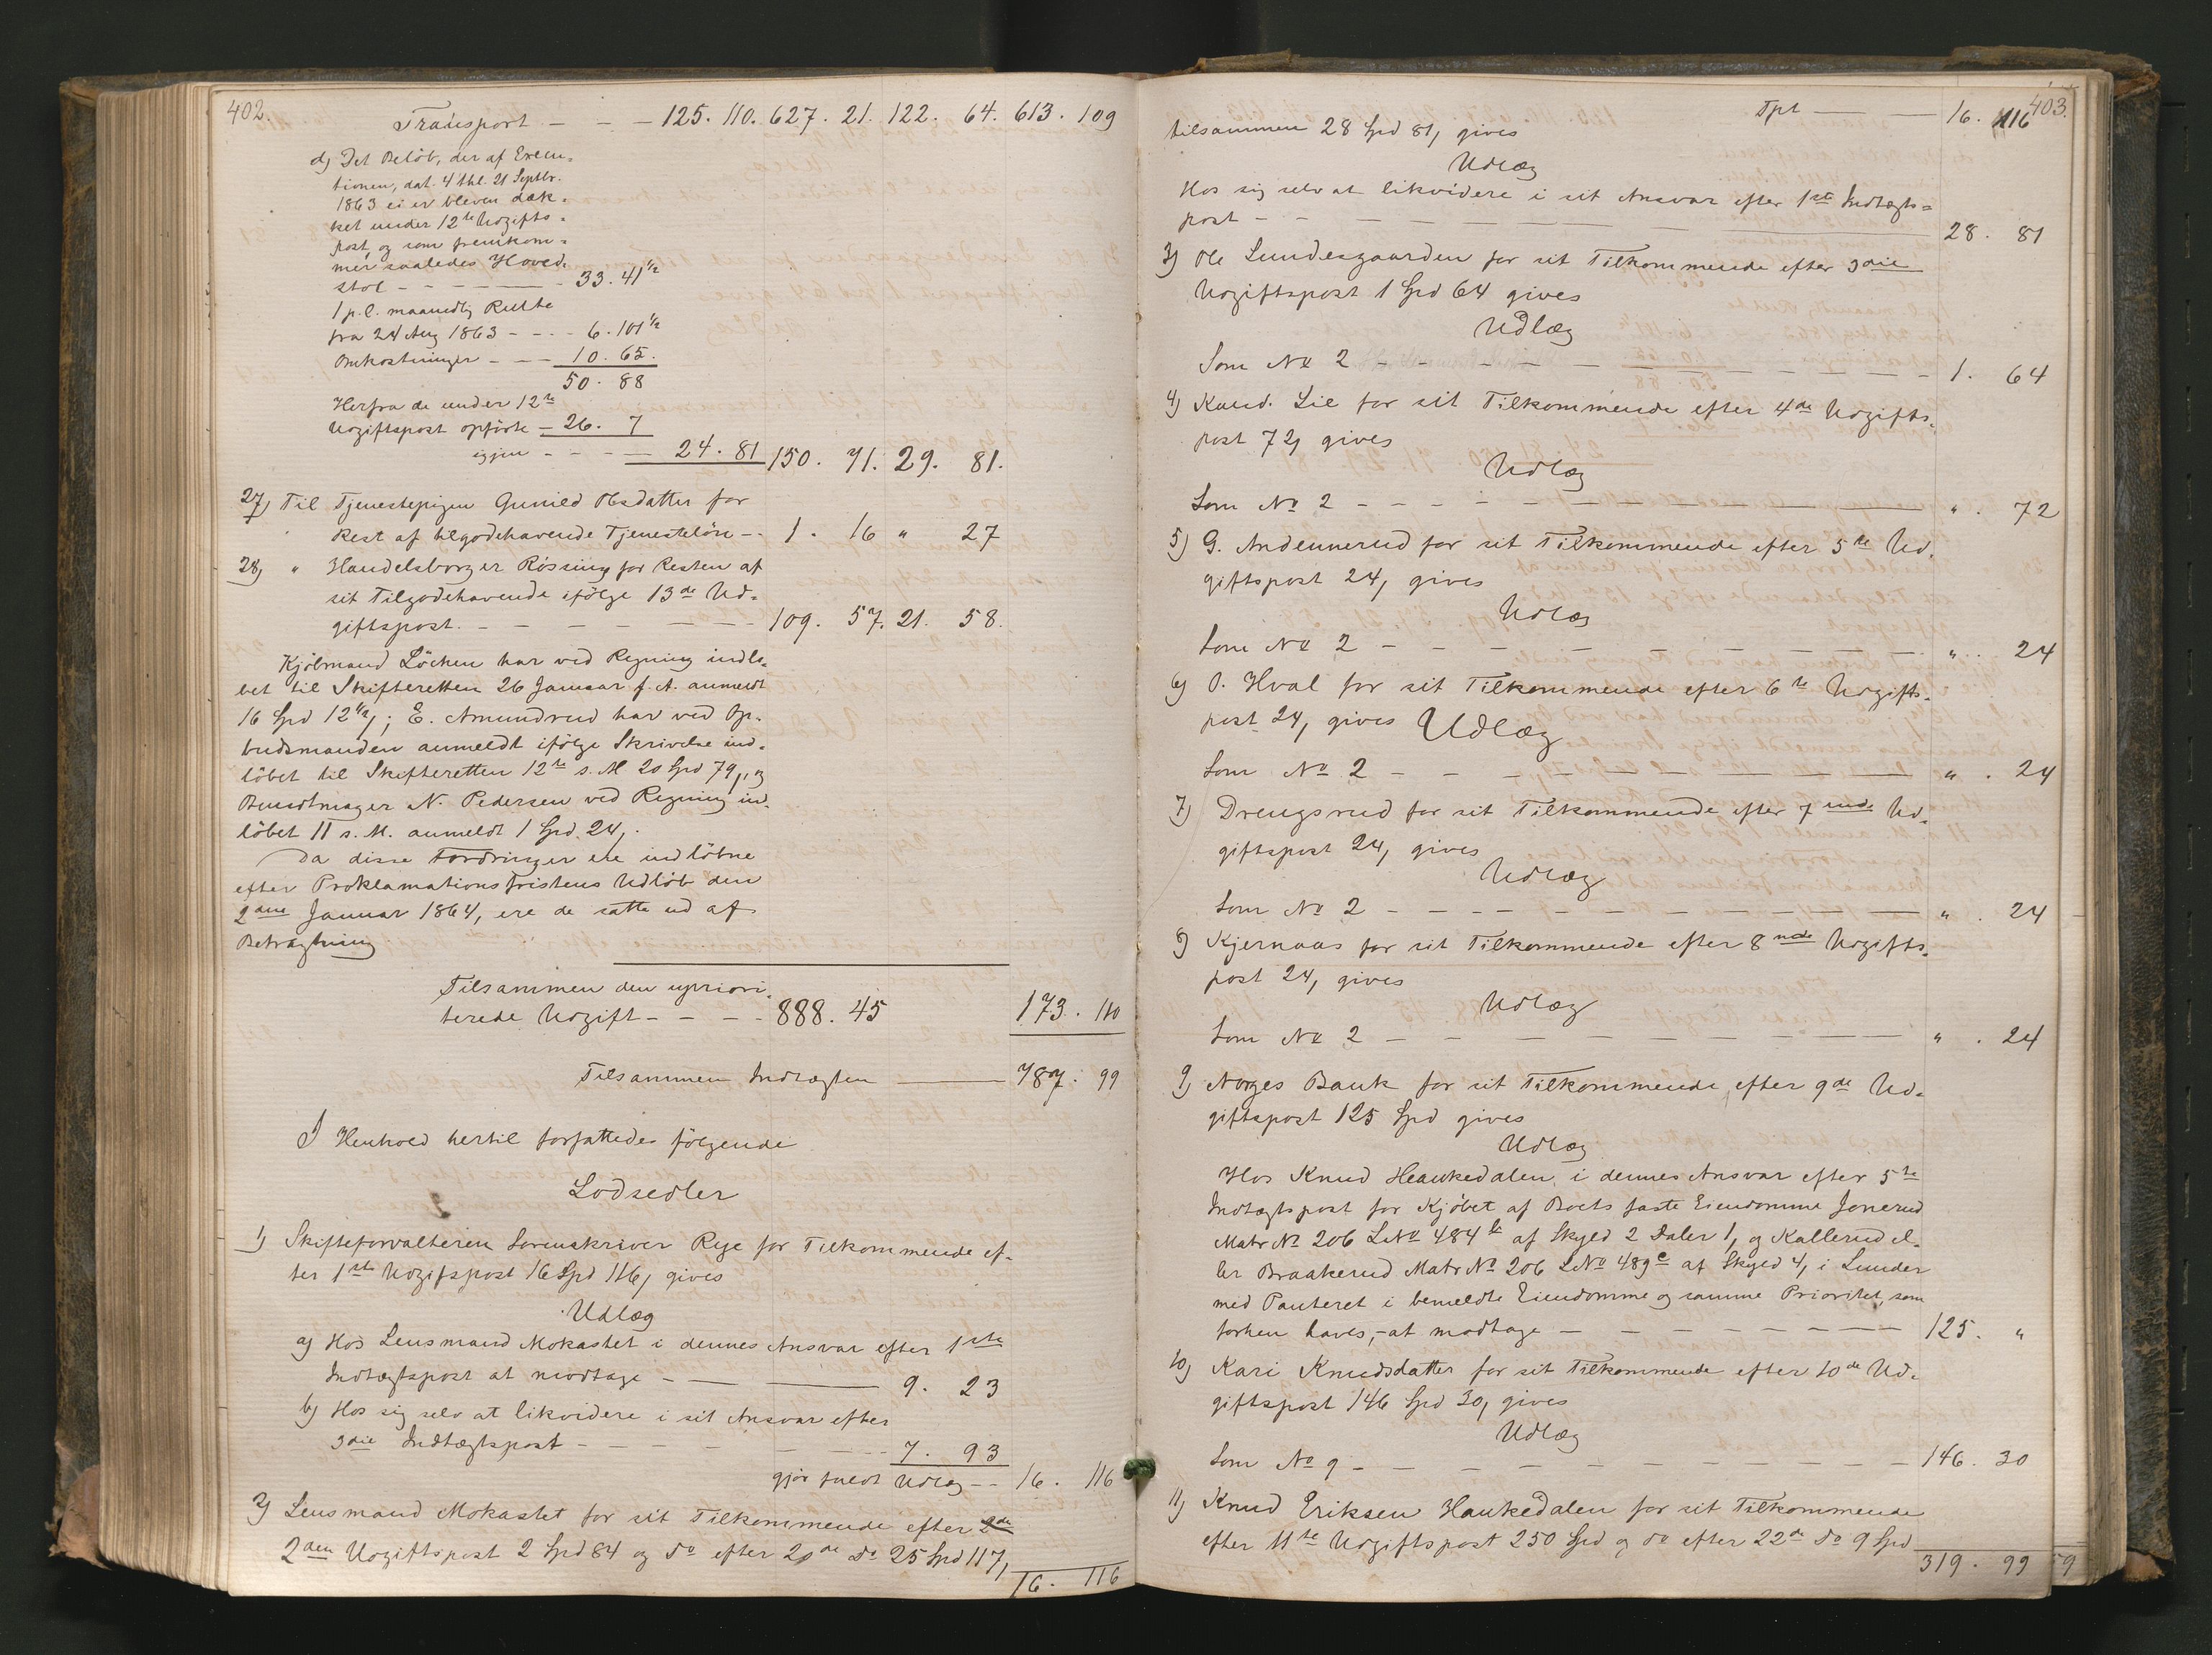 402.
Transport - - - 125. 110. 627. 21. 122. 64. 613. 109
d) Det Beløb, der af Execu=
tionen, dat. 4 thl. 21 Septbr.
1863 ei er bleven dæk=
ket under 12te Udgifts=
post og som fremkom=
mer saaledes Hoved.
stol - - - - - 33. 41 1/2
1 p.C. maanedlig Rente
fra 24 Aug 1863 - - - 6. 101 1/2
Omkostninger - - - 10. 65.
50. 88
Herfra de under 12te
Udgiftspost opførte - 26. 7
igjen - - - - 24. 81 150. 71. 29. 81.
27) Til Tjenestepigen Gunild Olsdatter for
Rest af tilgodehavende Tjenesteløn - 1. 16 " 27
28) " Handelsborger Røssing for Resten af
sit Tilgodehavende ifølge 13de Ud=
giftspost. - - - - - - 109. 57. 21. 58.
Kjøbmand Löchen har ved Regning indlø=
bet til Skifteretten 26 Januar f. A. anmeldt
16 Spd 12 1/2; E. Amundrud har ved Op=
budsmanden anmeldt ifølge Skrivelse ind=
løbet til Skifteretten 12te s. M 20 Spd 79, og
Bundtmager N. Pedersen ved Regning ind=
løbet 11 s. M. anmeldt 1 Spd. 24,.
Da disse Fordringer ere indløbne
efter Proklamationsfristens Udløb den
2den Januar 1864, ere de satte ud af
Betragtning
Tilsammen den upriori=
terede Udgift - - - - 888. 45 173. 110
Tilsammen Indtægten — 787. 99
I Henhold hertil forfattedes følgende
Lodsedler
1) Skifteforvalteren Sorenskriver Rye for Tilkommende ef=
ter 1ste Udgifspost 16 Spd 116, gives
Udlæg
a) Hos Lensmand Mokastet i dennes Ansvar efter 1ste
Indtægtspost at modtage - — — 9. 23
b) Hos sig selv at likvidere i sit Ansvar efter
3die Indtægtspost - - - - - - - 7. 93
gjør fuldt Udlæg - - 16. 116
2) Lensmand Mokastet for sit Tilkommende efter 2de
2den Udgiftspost 2 Spd 84 og do efter 20de do 25 Spd 117,
16. 116
403.
Tpt — — 16. 116
tilsammen 28 Spd 81, gives
Udlæg
Hos sig selv at likvidere i sit Ansvar efter 1ste Indtægts=
post - - - - — — — 28. 81
3) Ole Lundesgaarden for sit Tilkommende efter 3die
Udgiftspost 1 Spd 64 gives
Udlæg
Som No 2 - - - - - - - - - - 1. 64
4) Kand. Lie for sit Tilkommende efter 4de Udgifts=
post 72, gives
Udlæg
Som No 2 - - - - - - - — — — ". 72
5) G. Andennerud for sit Tilkommende efter 5te Ud=
giftspost 24, gives
Udlæg
Som No 2 - - - - - - - - - - ". 24
6) O. Hval for sit Tilkommende efter 6te Udgifts=
post 24, gives Udlæg
Som No 2 - - - - - - - - - - ". 24
7) Drengsrud for sit Tilkommende efter 7ende Ud=
giftspost 24, gives
Udlæg
Som No 2 - - - - - - - - - - ". 24
8) Kjernaas for sit Tilkommende efter 8nde Udgifts=
post 24, gives
Udlæg
Som No 2 - - - - - - - - - - ". 24
9) Norges Bank for sit Tilkommende efter 9de Ud=
giftspost 125 Spd gives
Udlæg
Hos Knud Haukedalen, i dennes Ansvar efter 5te
Indtægtspost for Kjøbet af Boets faste Eiendomme Jonerud
Matr No 206 LNo 484b af Skyld 2 Daler 1, og Kallerud el=
ler Braakerud Matr No 206 LNo 489c af Skyld 4, i Lunder
med Panteret i bemeldte Eiendomme og samme Prioritet, som
forhen haves, - at modtage - - - - - - - 125. "
10) Kari Knudsdatter for sit Tilkommende efter 10de Ud=
giftspost 146 Spd 30, gives
Udlæg
Som No 9 - - - - - - - - - - 146. 30
11) Knud Eriksen Haukedalen for sit Tilkommende
efter 11te Udgiftspost 250 Spd og do efter 22de do 9 Spd
319. 99